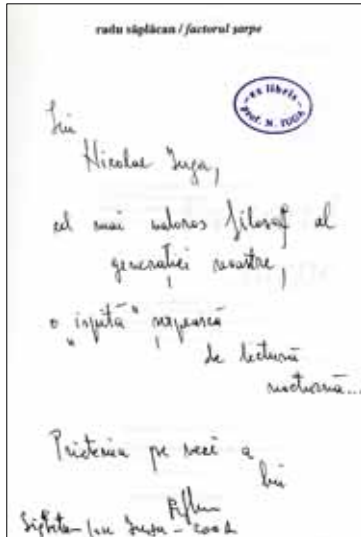 radu săplăcan / factorul șarpe
ex libris
prof. N. IUGA
Lui
Nicolae Iuga,
cel mai valoros filosof al
generației noastre,
o „ispită” șerpească
de lectură
nocturnă...
Prietenia pe veci a
lui